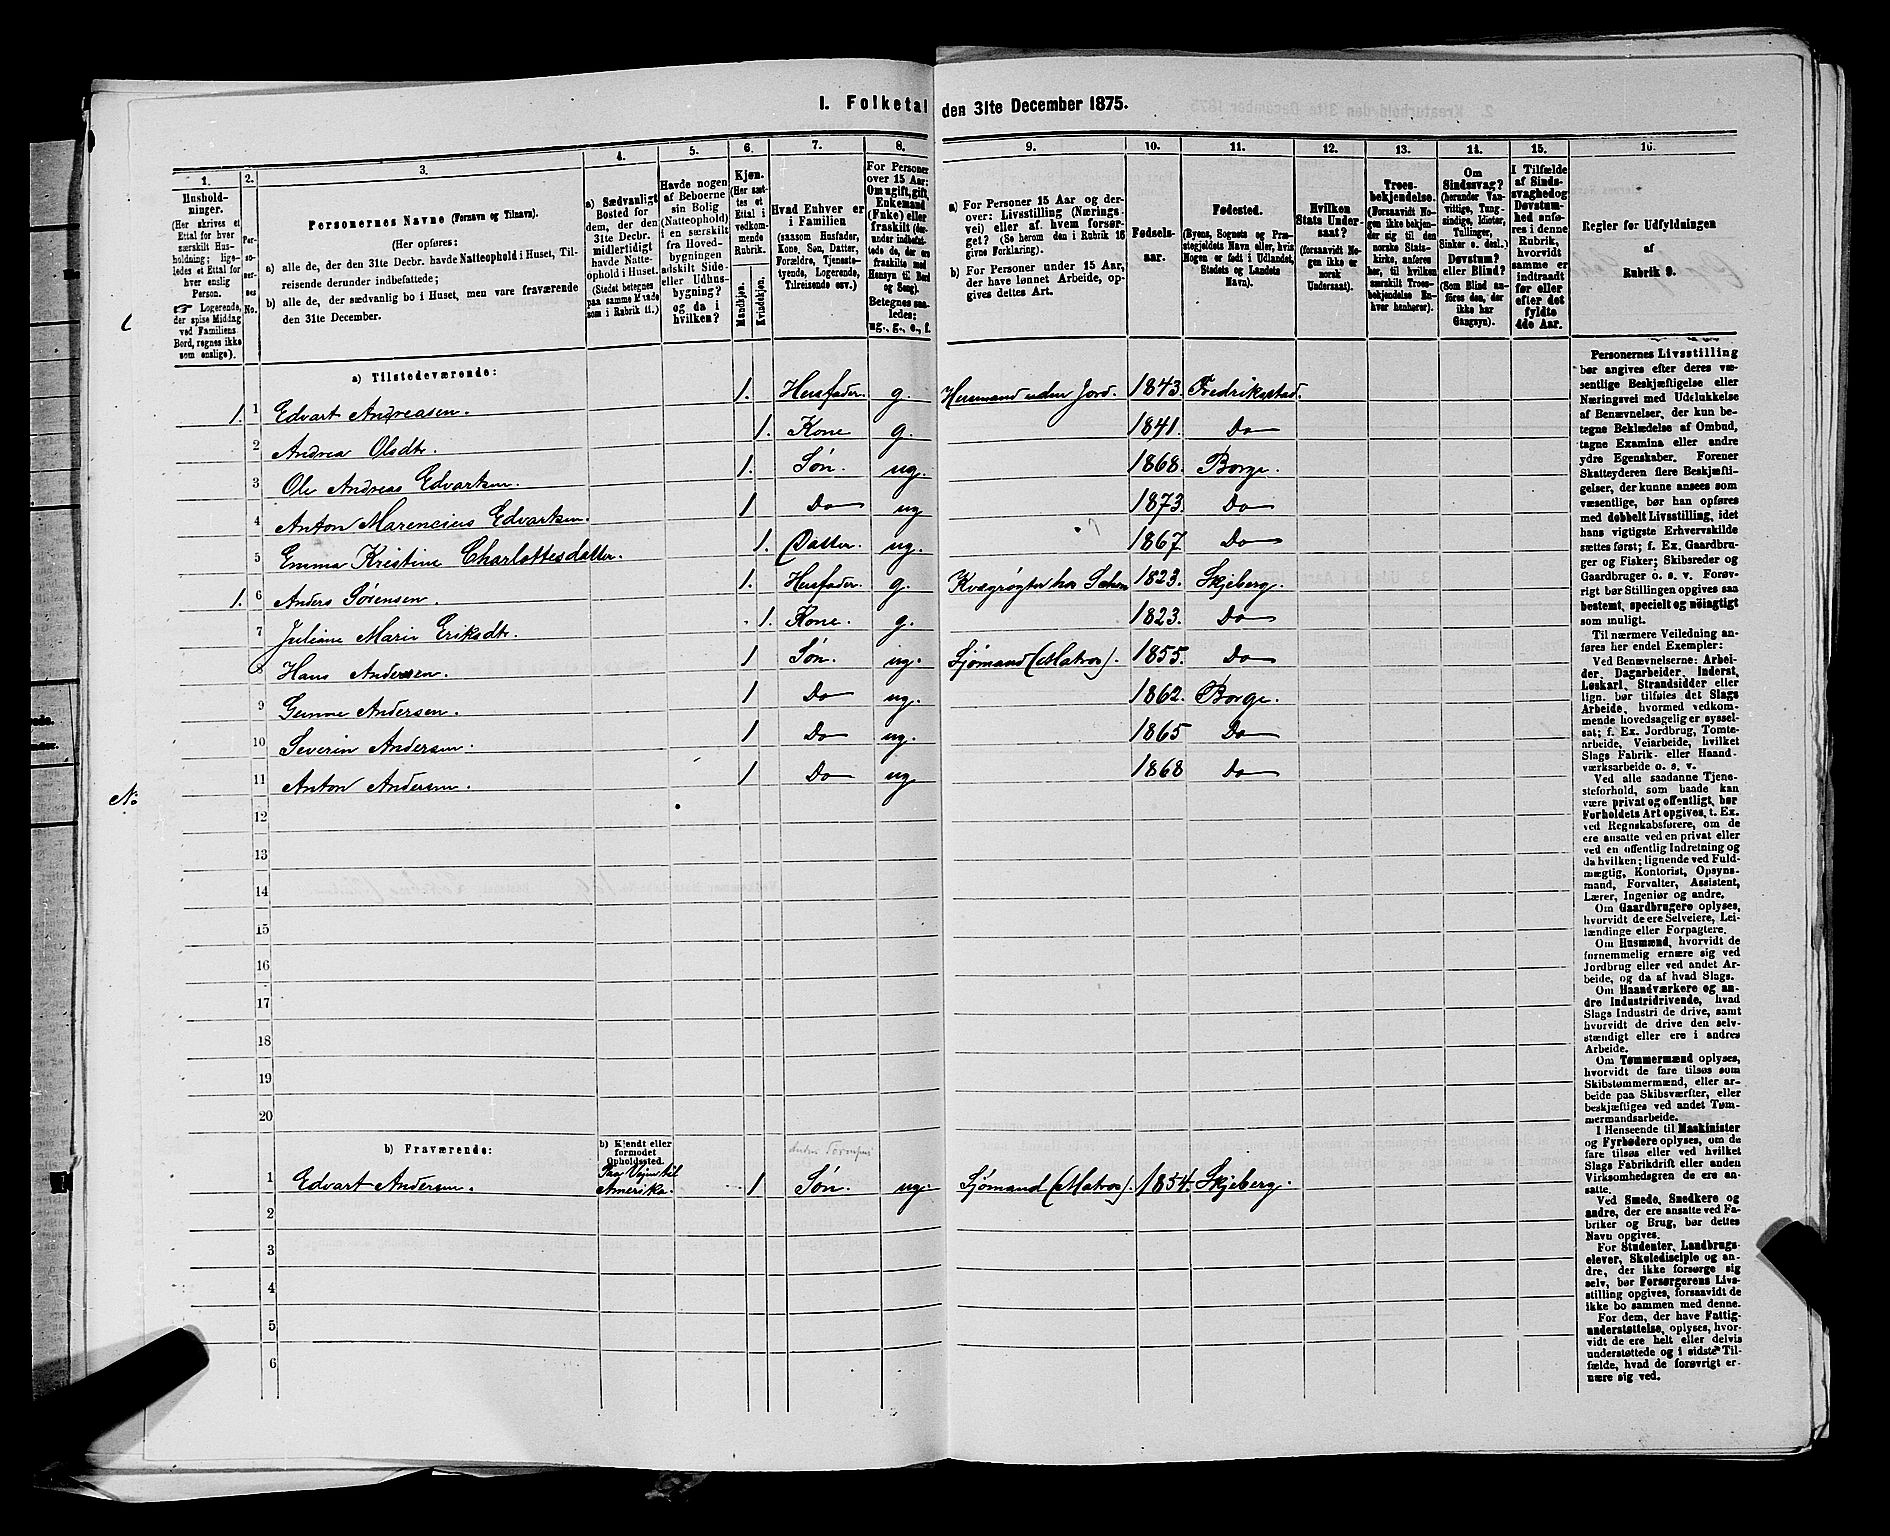 I. Folketal den 31te December 1875.
1. 2. 3. 4. 5. 6. 7. 8. 9. 10. 11. 12. 13. 14. 15. 16.
Hushold-
ninger.
(Her skrives et
Ettal for hver
særskilt Hus-
holdning; lige-
ledes et Ettal for
hver enslig
Person.
☞ Logerende,
der spise Middag
ved Familiens
Bord, regnes ikke
som enslige).
Per-
so-
ner-
nes
No.
Personernes Navne (Fornavn og Tilnavn).
(Her opføres:
a) alle de, der den 31te Decbr. havde Natteophold i Huset, Til-
reisende derunder indbefattede;
b) alle de, der sædvanlig bo i Huset, men vare fraværende
den 31te December.
a) Sædvanligt
Bosted for
dem, der den
31te Decbr.
midlertidigt
havde Natte-
ophold i Huset.
(Stedet betegnes
paa samme Maade
som i Rubrik 11.)
Havde nogen
af Beboerne
sin Bolig
(Natteophold)
i en særskilt
fra Hoved-
bygningen
adskilt Side-
eller Udhus-
bygning?
og da i
hvilken?
Kjøn.
(Her sæt-
tes et
Ettal i
vedkom-
mende
Rubrik.
Mandkjøn. Kvindekjøn.
Hvad Enhver er
i Familien
(saasom Husfader,
Kone, Søn, Datter,
Forældre, Tjeneste-
tyende, Logerende,
Tilreisende osv.)
For Personer
over 15 Aar:
Om ugift, gift,
Enkemand
(Enke) eller
fraskilt (der-
under indbefat-
tede de, der ere
fraskilte med
Hensyn til Bord
og Seng).
Betegnes saa-
ledes:
ug., g., e., f.
a) For Personer 15 Aar og der-
over: Livsstilling (Nærings-
vei) eller af hvem forsør-
get? (Se herom den i Rubrik 16
givne Forklaring).
b) For Personer under 15 Aar,
der have lønnet Arbeide, op-
gives dettes Art.
Fødsels-
aar.
Fødested.
(Byens, Sognets og Præ-
stegjeldets Navn eller, hvis
Nogen er født i Udlandet,
Stedets og Landets
Navn).
Hvilken
Stats Under-
saat?
(forsaavidt No-
gen ikke er
norsk
Undersaat).
Troes-
bekjendelse.
(Forsaavidt No-
gen ikke bekjen-
der sig til den
norske Stats-
kirke, anføres
her, til hvilken
særskilt Troes-
bekjendelse En-
hver henhører).
Om
Sindssvag?
(herunder Van-
vittige, Tung-
sindige, Idioter,
Sinker o. desl.)
Døvstum?
eller Blind?
(Som Blind an-
føres den, der
ikke har
Gangsyn).
I Tilfælde
af Sinds-
svaghed og
Døvstum-
hed anfø-
res i denne
Rubrik,
hvorvidt
samme er
indtraadt
før eller
efter det
fyldte
4de Aar.
Regler for Udfyldningen
af
Rubrik 9.
a) Tilstedeværende:
1. 1 Edvart Andreasen. 1. Husfader. g. Husmand uden Jord. 1843. Fredriksstad.
2 Andrea Olsdtr. 1. Kone g. 1841. Do
3 Ole Andreas Edvartsen. 1. Søn. ug. 1868. Borge.
4 Anton Marencius Edvartsen. 1 Do ug 1873. Do
5 Emma Kristine Charlottesdatter. 1. Datter. ug. 1867. Do
1. 6 Anders Sørensen. 1. Husfader. g. Kvægrøgter hos 1823. Skjeberg.
7 Juliane Marie Eriksdtr. 1. Kone. g. 1823. Do
8 Hans Andersen. 1 Søn. ug. Sjømand (Matros). 1855. Do
9 Gunne Andersen. 1 Do ug. 1862. Borge.
10 Severin Andersen. 1 Do ug. 1865 Do
11 Anton Andersen. 1 Do ug 1868 Do
No
12
13
14
15
16
17
18
19
20
b) Fraværende:
b) Kjendt eller
formodet
Opholdssted.
1 Edvart Andersen. Paa Veien til
Amerika. 1 Søn. ug. Sjømand (Matros). 1854. Skjeberg.
2
3
4
5
6
Personernes Livsstilling
bør angives efter deres væ-
sentlige Beskjæftigelse eller
Næringsvei med Udelukkelse
af Benævnelser, der kun be-
tegne Beklædelse af Ombud,
tagne Examina eller andre
ydre Egenskaber. Forener
Skatteyderen flere Beskjæfti-
gelser, der kunne ansees som
væsentlige, bør han opføres
med dobbelt Livsstilling, idet
hans vigtigste Erhvervskilde
sættes først; f. Ex. Gaardbru-
ger og Fisker; Skibsreder og
Gaardbruger o. s. v. Forøv-
rigt bør Stillingen opgives saa
bestemt, specielt og nøiagtigt
som muligt.
Til nærmere Veiledning an-
føres her endel Exempler:
Ved Benævnelserne: Arbei-
der, Dagarbeider, Inderst,
Løskarl, Strandsidder eller
lign. bør tilføies det Slags
Arbeide, hvormed vedkom-
mende hovedsagelig er syssel-
sat; f. Ex. Jordbrug, Tomte-
arbeide, Veiarbeide, hvilket
Slags Fabrik- eller Haand-
værksarbeide o. s. v.
Ved alle saadanne Tjene-
steforhold, som baade kan
være privat og offentligt, bør
Forholdets Art opgives, t. Ex.
ved Regnskabsførere, om de
ere ansatte ved en privat eller
ved en offentlig Indretning og
da hvilken; lignende ved Fuld-
mægtig, Kontorist, Opsyns-
mand, Forvalter, Assistent,
Lærer, Ingeniør og andre.
Om Gaardbrugere oplyses,
hvorvidt de ere Selveiere, Lei-
lændinge eller Forpagtere.
Om Husmænd, hvorvidt de
fornemmelig ernære sig ved
Jordbrug eller ved andet Ar-
beide, og da af hvad Slags.
Om Haandværkere og an-
dre Industridrivende, hvad
Slags Industri de drive, samt
hvorvidt de drive den selv-
stændigt eller ere i andres
Arbeide.
Om Tømmermænd oplyses,
hvorvidt de fare tilsøs som
Skibstømmermænd, eller ar-
beide paa Skibsværfter, eller
beskjæftiges ved andet Tøm-
mermandsarbeide.
I Henseende til Maskinister
og Fyrbødere oplyses, om de
fare tilsøs eller ved hvilket
Slags Fabrikdrift eller anden
Virksomhedsgren de ere an-
satte.
Ved Smede, Snedkere og
andre, der ere ansatte ved Fa-
briker og Brug, bør dettes
Navn opgives.
For Studenter, Landbrugs-
elever, Skoledisciple og an-
dre, der ikke forsørge sig
selv, bør Forsørgerens Livs-
stilling opgives, forsaavidt de
ikke bo sammen med denne.
For dem, der have Fattig-
understøttelse, oplyses, hvor-
vidt de ere helt eller delvis
understøttede og i sidste Til-
fælde, hvad de forøvrigt er-
nære sig ved.